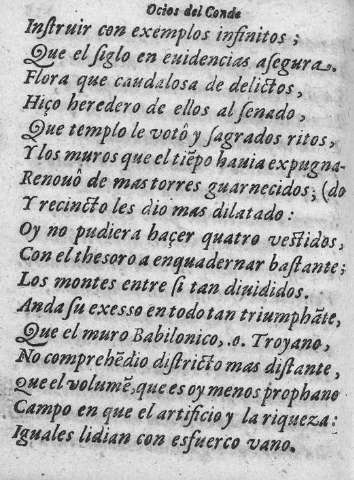 Ocios del Conde
Instruir con exemplos infinitos;
Que el siglo en euidencias asegura.
Flora que caudalosa de delictos,
Hiço heredero de ellos al senado,
Que templo le votô y sagrados ritos,
Y los muros que el tiẽpo hauia expugna-
Renouô de mas torres guarnecidos; (do
Y recincto les dio mas dilatado:
Oy no pudiera haçer quatro vestidos,
Con el thesoro a enquadernar bastante;
Los montes entre si tan diuididos.
Anda su exesso en todo tan triumphãte,
Que el muro Babilonico, o Troyano,
No comprehẽdio districto mas distante,
Que el volumẽ, que es oy menos prophano
Campo en que el artificio y la riqueza:
Iguales lidian con esfuerco vano.